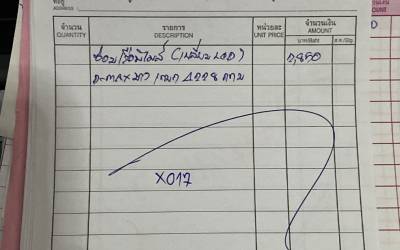 ที่อยู่
ADDRESS
จำนวน รายการ หน่วยละ จำนวนเงิน
QUANTITY DESCRIPTION UNIT PRICE AMOUNT
บาท/Baht ส.ต./Stg.
ซ่อมเรือนไมล์ (เปลี่ยน LCD) 1,850
D-MAX ขาว 4228
X017